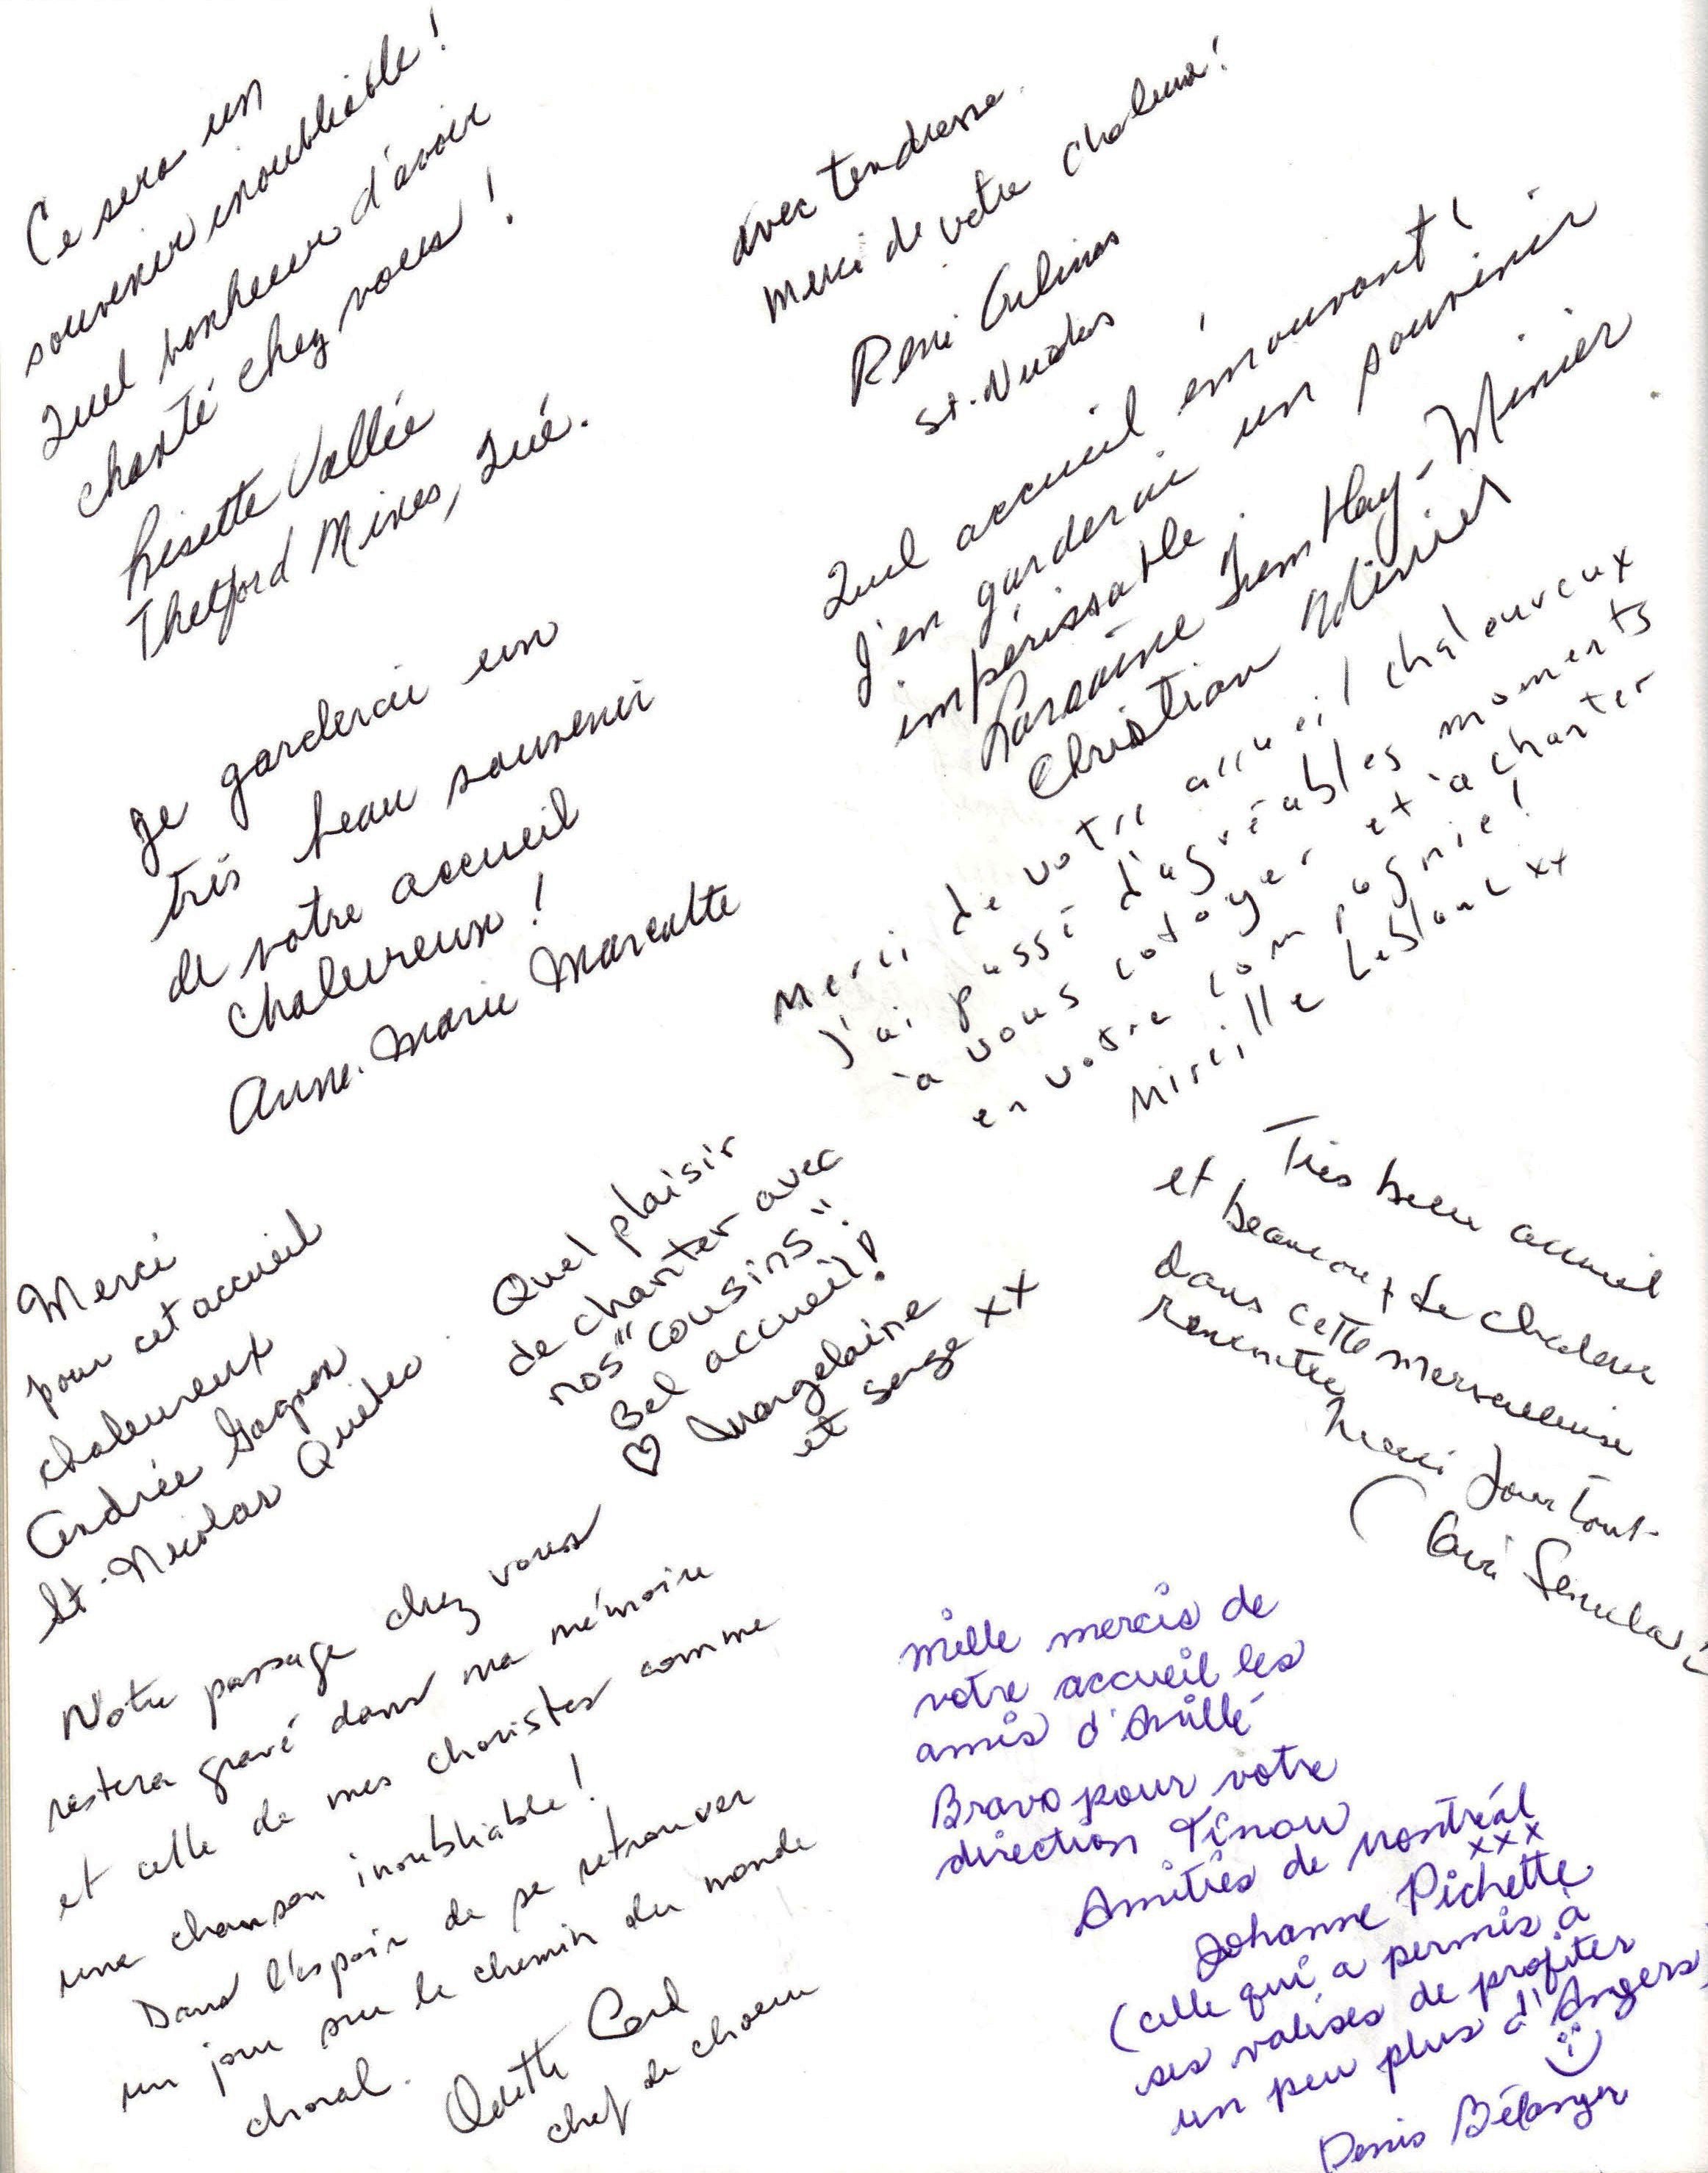 Ce sera un
souvenir inoubliable!
Quel bonheur d'avoir
chanté chez vous!
Lisette Vallée
Thetford Mines, Qué.
avec tendresse
merci de votre chaleur!
René
St-Nicolas
Quel accueil émouvant!
J'en garderai un souvenir
impérissable.
Lorraine Tremblay-Minier
Christian Minier
Je garderai un
très beau souvenir
de votre accueil
chaleureux!
Anne-Marie Marcotte
Merci de votre accueil chaleureux
J'ai passé d'agréables moments
à vous cotoyer et à chanter
en votre compagnie!
Mireille Leblanc xx
Merci
pour cet accueil
chaleureux
Andrée Gagnon
St-Nicolas Québec
Quel plaisir
de chanter avec
nos "cousins".
Bel accueil!
♡ Angelaine
et serge xx
Très beau accueil
et beaucoup de chaleur
dans cette merveilleuse
rencontre
Merci pour tout
Notre passage chez vous
restera gravé dans ma mémoire
et celle de mes choristes comme
une chanson inoubliable!
Dans l'espoir de se retrouver
un jour sur le chemin du monde
choral.
Odette
chef de choeur
mille mercis de
votre accueil les
amis d'Avillé
Bravo pour votre
direction Tinou
Amitiés de Montréal
xxx
Johanne Pichette
(celle qui a permis à
ses valises de profiter
un peu plus d'Angers
Denis Bélanger